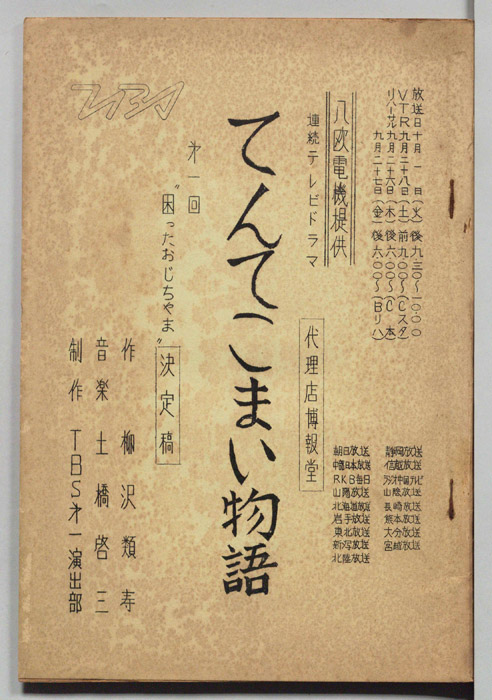 放送日十月一日(火)後九.三〇〜一〇.〇〇
VTR九月二十八日(土)前九.〇〇〜(Cスタ)
リハーサル九月二十六日(木)後六.〇〇〜(C本)
九月二十七日(金)後六.〇〇〜(Bリハ)
八欧電機提供
連続テレビドラマ
てんてこまい物語
代理店博報堂
第一回
"困ったおじちゃま"
決定稿
作 柳沢類寿
音楽 土橋啓三
制作 TBS第一演出部
TBS
朝日放送
中部日本放送
RKB毎日
山陽放送
北海道放送
岩手放送
東北放送
新潟放送
北陸放送
静岡放送
信越放送
山陰放送
長崎放送
熊本放送
大分放送
宮崎放送